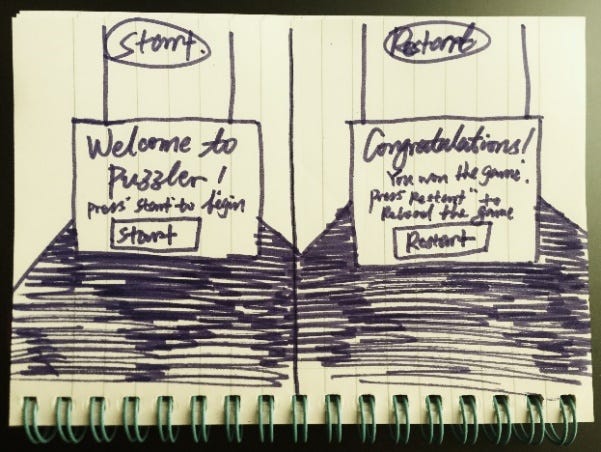 Start.
Welcome to
Puzzler!
press "Start" to begin
Start
Restart
Congratulations!
You won the game.
Press "Restart" to
Reload the game
Restart